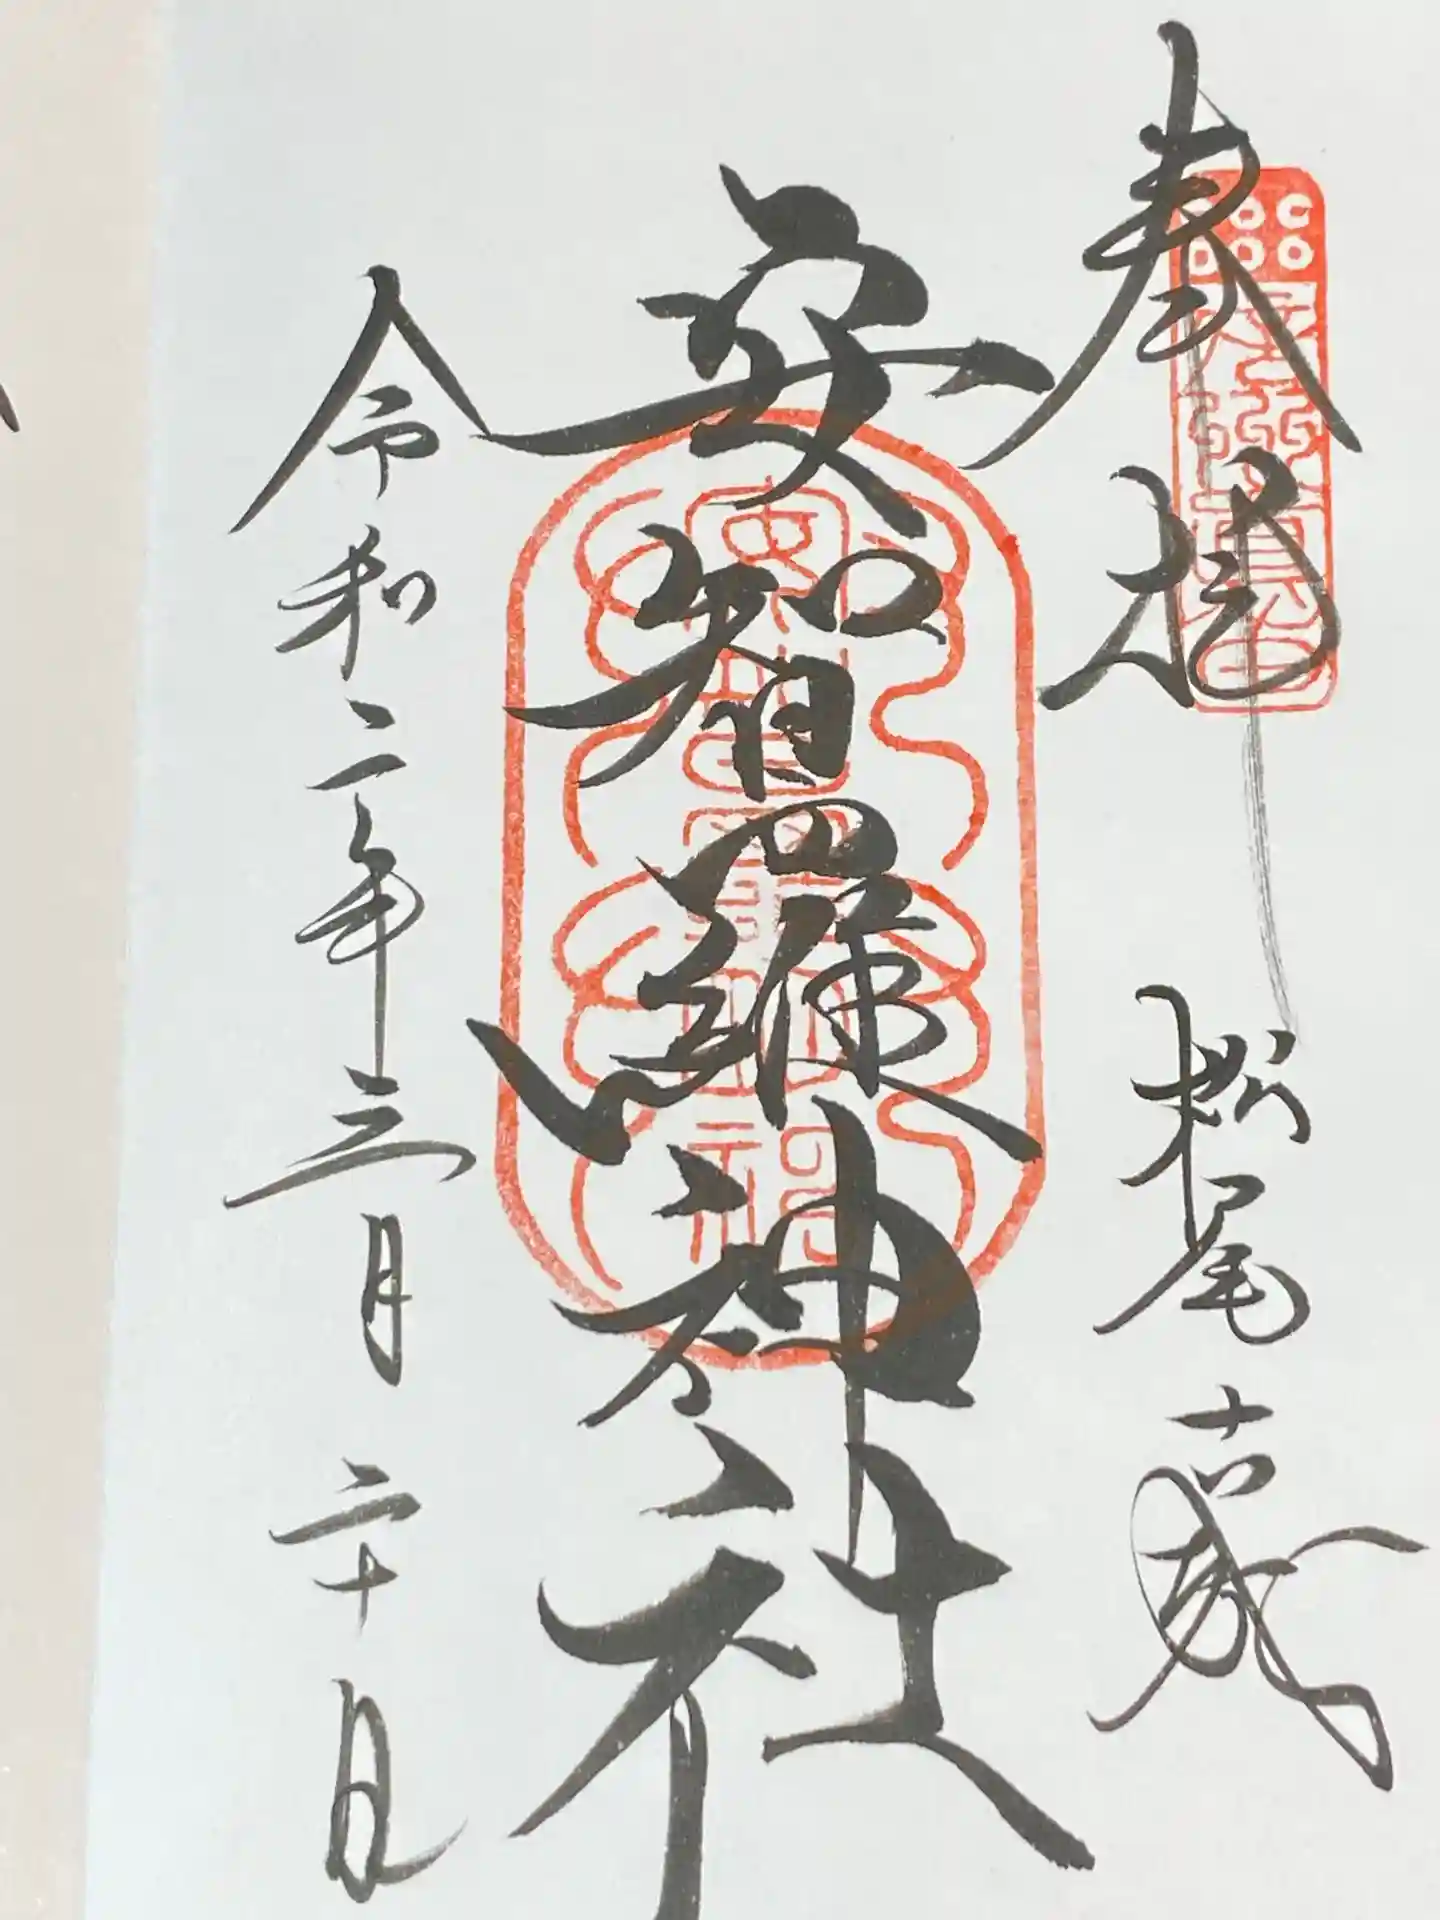 奉拝 松尾古城
安智羅神社
令和二年三月二十日